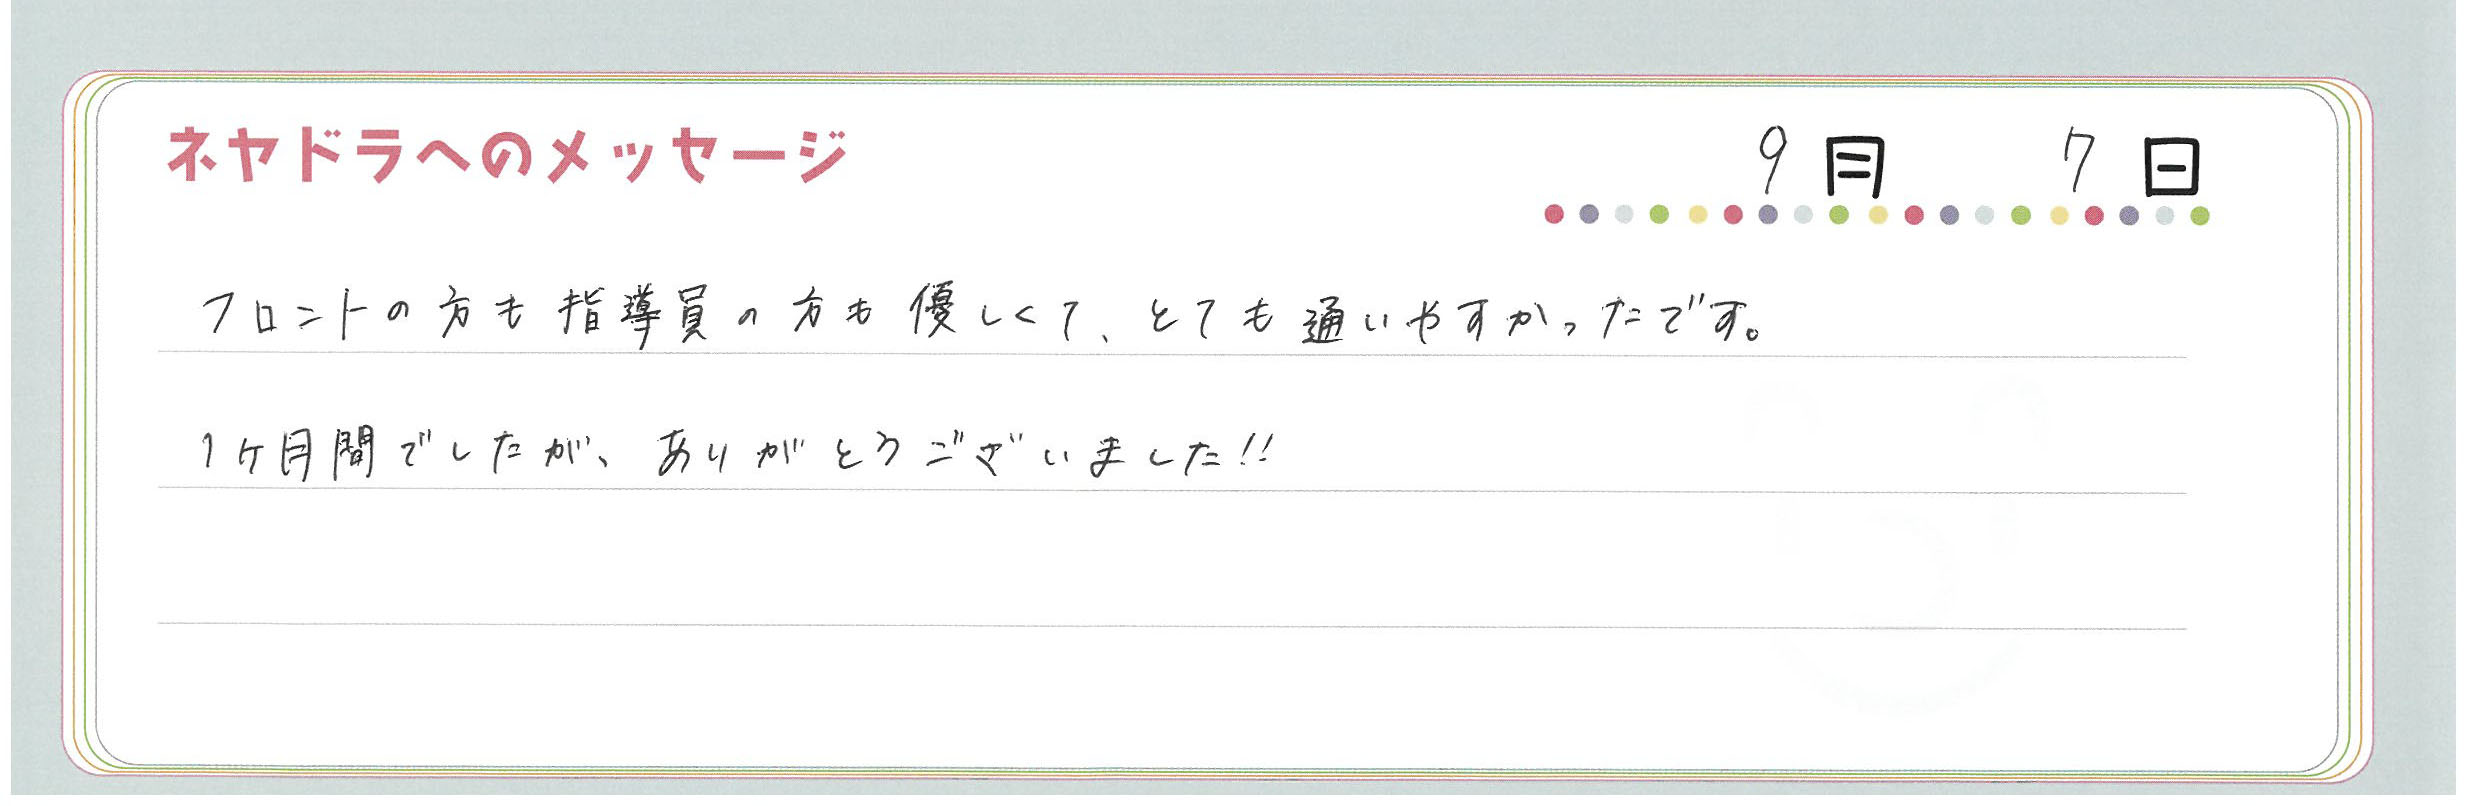 ネヤドラへのメッセージ
9月 7日
フロントの方も指導員の方も優しくて、とても通いやすかったです。
1ヶ月間でしたが、ありがとうございました!!